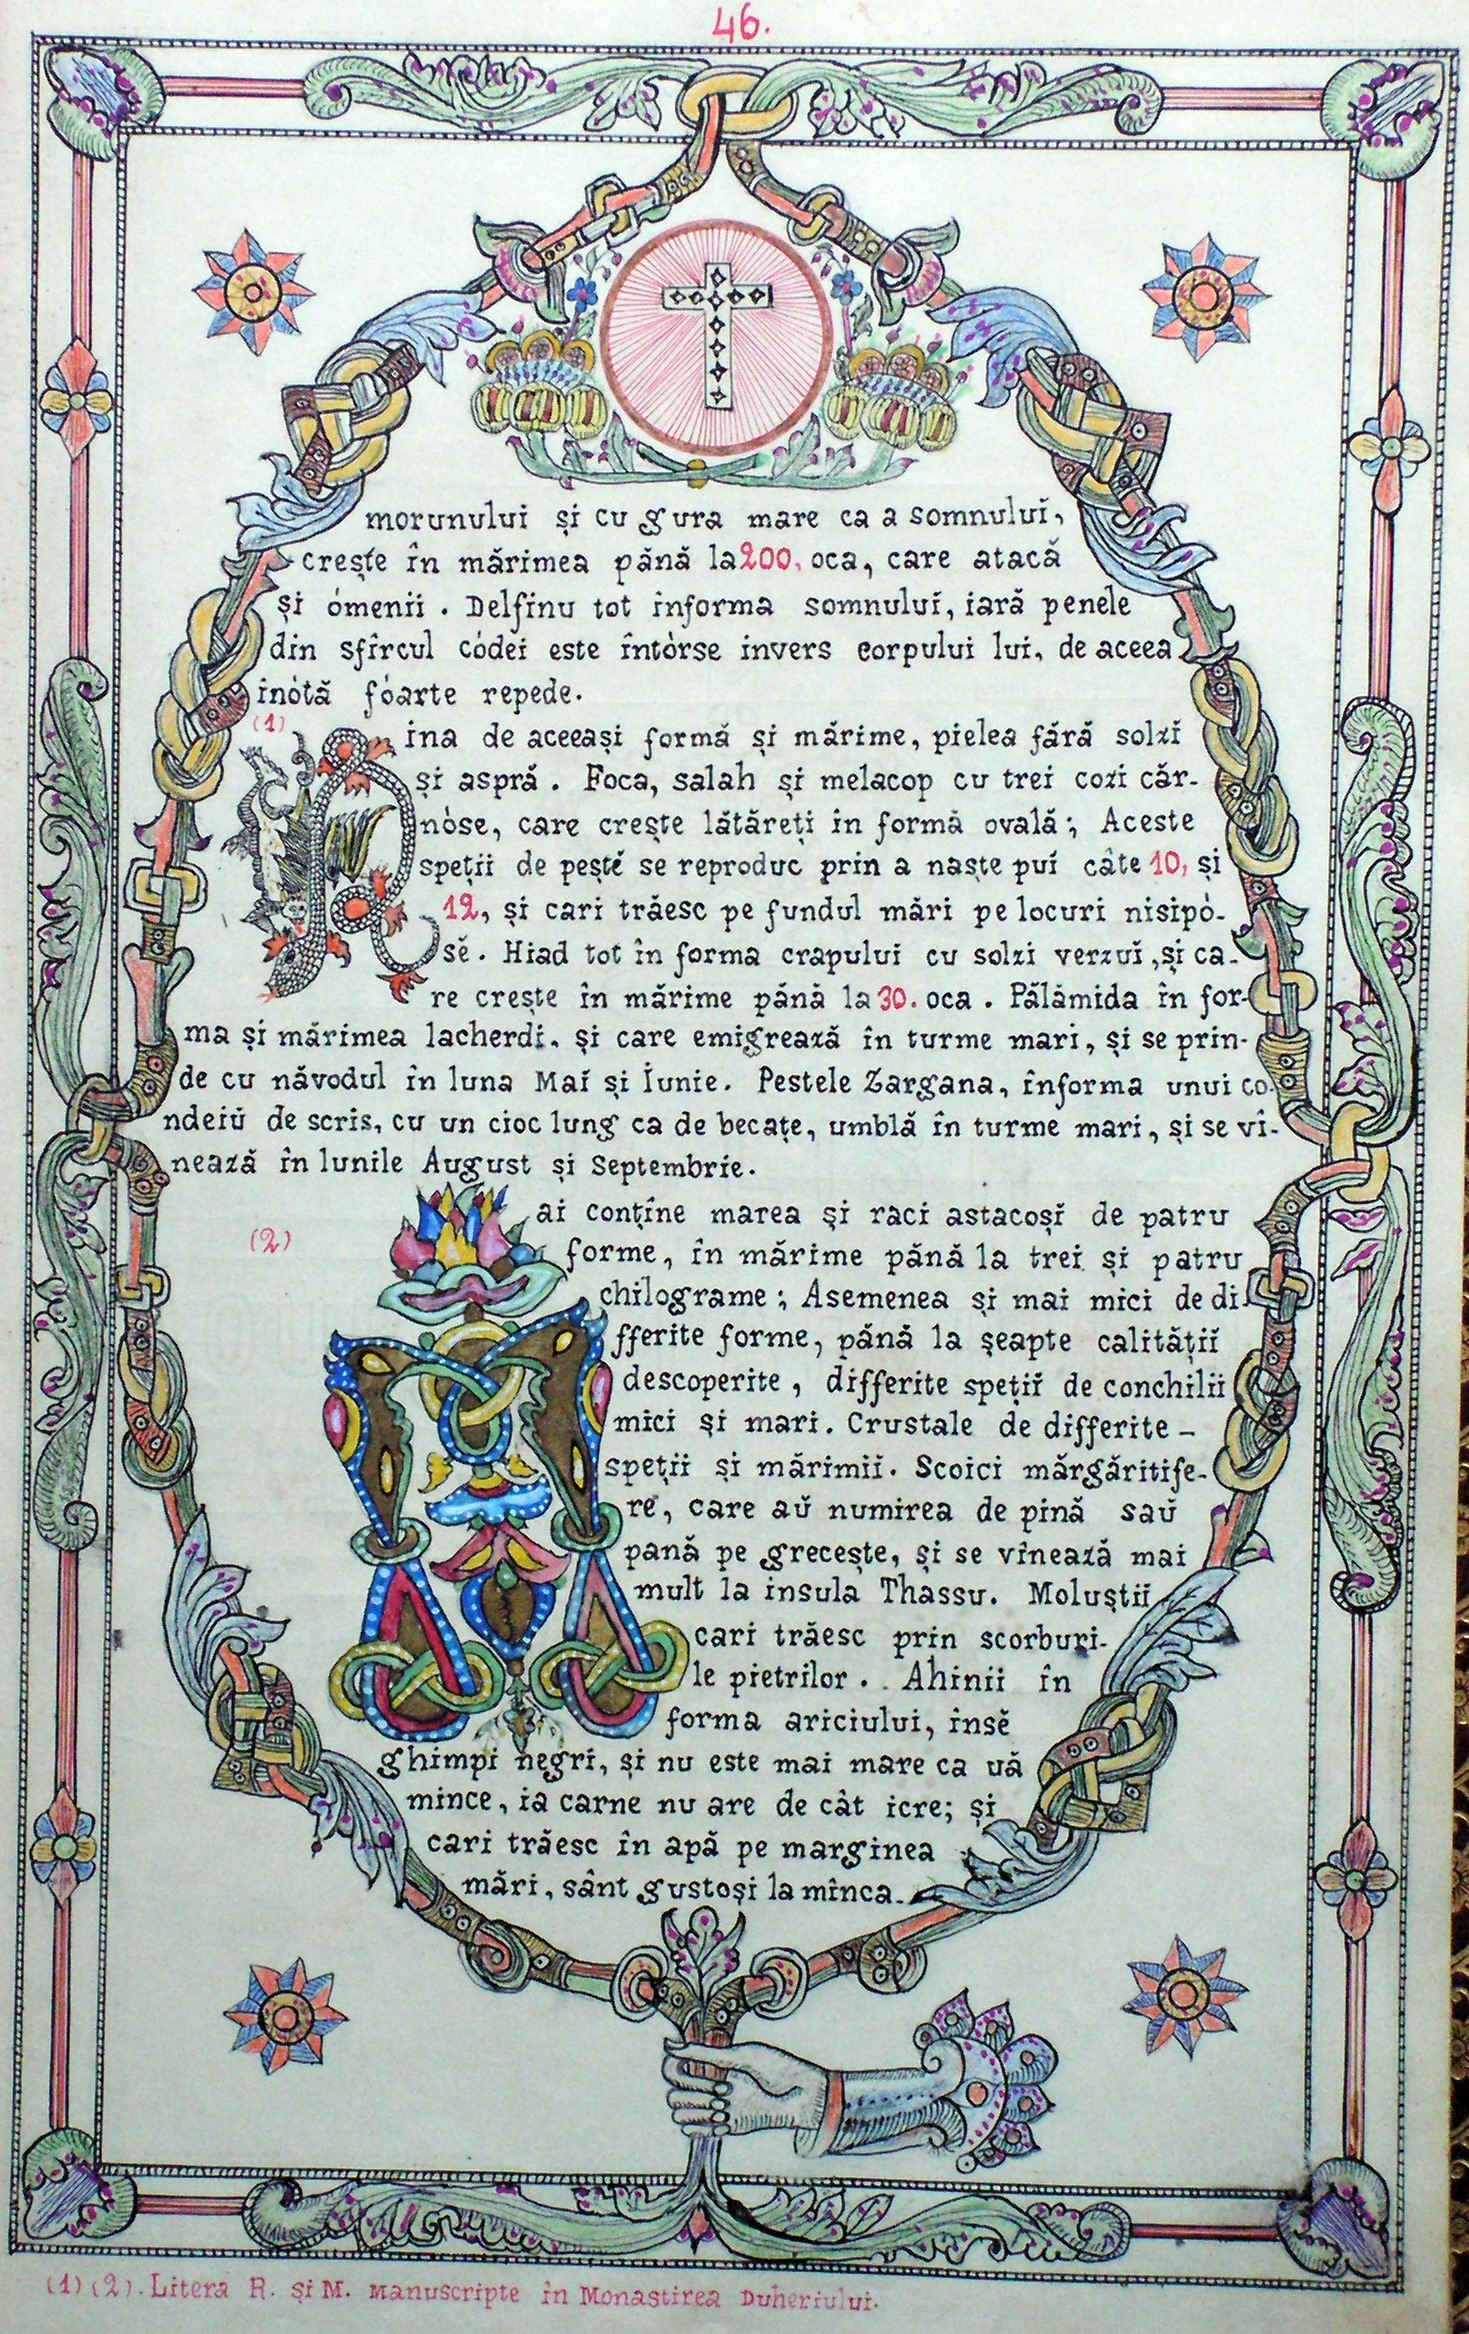 46.
morunului și cu gura mare ca a somnuluĭ,
crește în mărimea pănă la 200. oca, care atacă
și ómenii. Delfinu tot înforma somnuluĭ, iară penele
din sfîrcul códei este întórse invers corpului lui, de aceea
inótă fóarte repede.
(1)
Rina de aceeași formă și mărime, pielea fără solzĭ
și aspră. Foca, salah și melacop cu trei cozi căr-
nóse, care crește lătăreți in formă ovală; Aceste
speții de pește se reproduc prin a naște puĭ câte 10, și
12, și cari trăesc pe fundul mări pe locuri nisipó-
sĕ. Hiad tot în forma crapului cu solzi verzuĭ, și ca-
re crește în mărime pănă la 30. oca. Pălămida în for-
ma și mărimea lacherdi. și care emigrează în turme mari, și se prin-
de cu năvodul în luna Maĭ și Iunie. Pestele Zargana, înforma unui co-
ndeiŭ de scris, cu un cioc lung ca de becațe, umblă în turme mari, și se vî-
nează în lunile August și Septembrie.
(2)
Mai conține marea și raci astacoșĭ de patru
forme, în mărime pănă la trei și patru
chilograme; Asemenea și mai mici de di-
fferite forme, pănă la șeapte calitățiĭ
descoperite, differite spețiĭ de conchilii
mici și mari. Crustale de differite -
speții și mărimii. Scoici mărgăritife-
re, care aŭ numirea de pină saŭ
pană pe grecește, și se vînează mai
mult la insula Thassu. Moluștiĭ
cari trăesc prin scorburi-
le pietrilor. Ahinii în
forma ariciului, însĕ
ghimpi negri, și nu este mai mare ca uă
mince, ia carne nu are de cât icre; și
cari trăesc în apă pe marginea
mări, sânt gustoși la mînca.
(1) (2). Litera R. și M. manuscripte în Monastirea Duheriului.